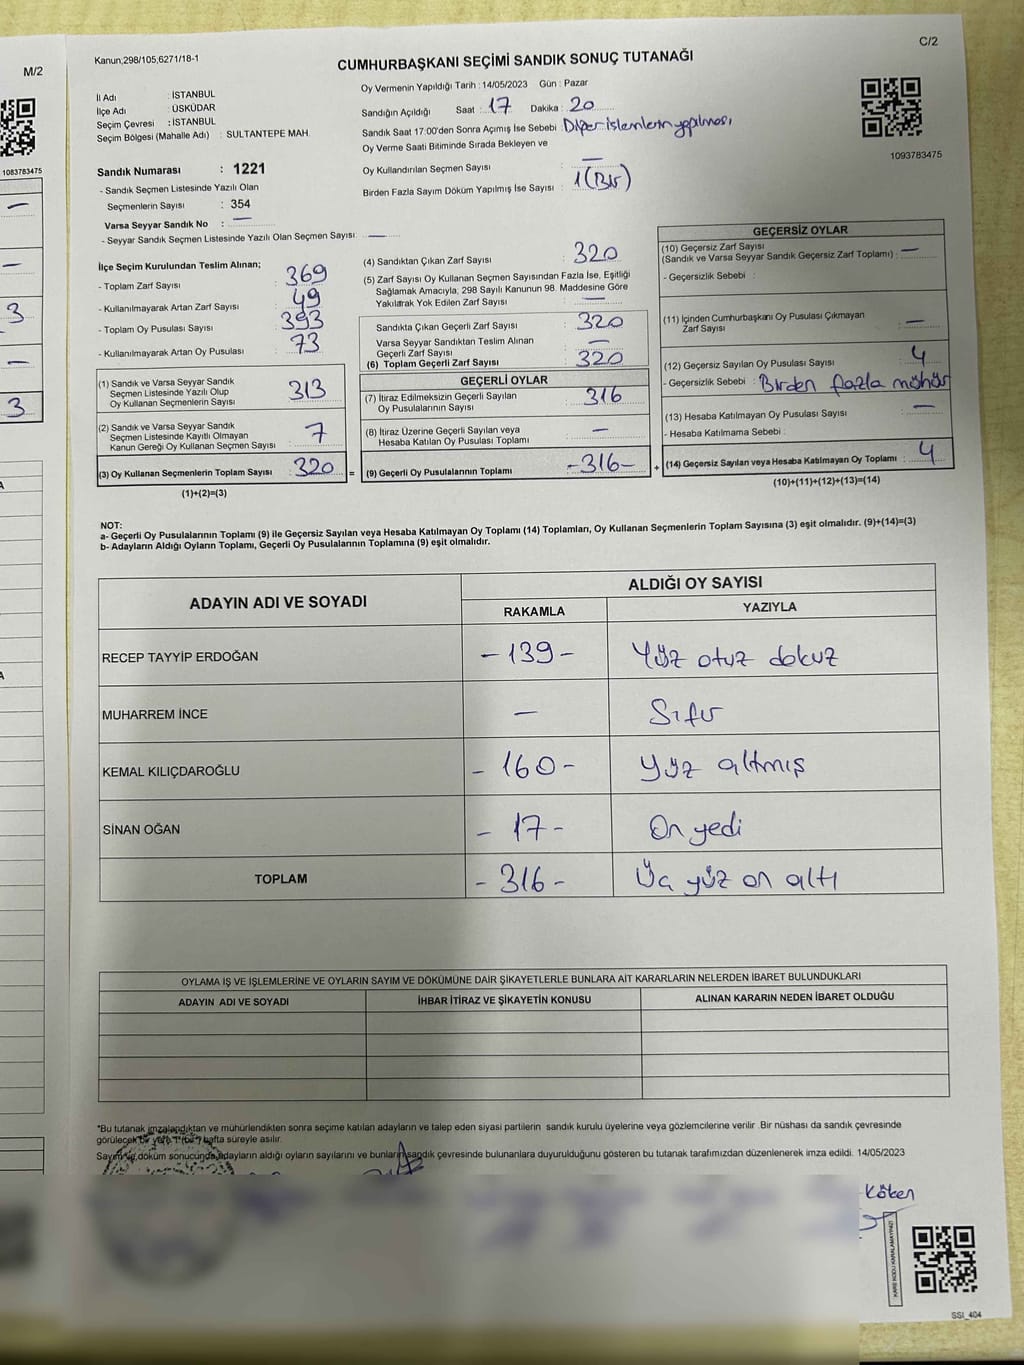 M/2
1083783475
3
3
Kanun,298/105,6271/18-1
C/2
CUMHURBAŞKANI SEÇİMİ SANDIK SONUÇ TUTANAĞI
İl Adı : İSTANBUL
İlçe Adı : ÜSKÜDAR
Seçim Çevresi : İSTANBUL
Seçim Bölgesi (Mahalle Adı) : SULTANTEPE MAH.
Sandık Numarası : 1221
- Sandık Seçmen Listesinde Yazılı Olan
Seçmenlerin Sayısı : 354
Varsa Seyyar Sandık No : —
- Seyyar Sandık Seçmen Listesinde Yazılı Olan Seçmen Sayısı: —
Oy Vermenin Yapıldığı Tarih : 14/05/2023 Gün : Pazar
Sandığın Açıldığı Saat : 17 Dakika : 20
Sandık Saat 17.00'den Sonra Açımış İse Sebebi : Diğer işlemlerin yapılması
Oy Verme Saati Bitiminde Sırada Bekleyen ve
Oy Kullandırılan Seçmen Sayısı : —
Birden Fazla Sayım Döküm Yapılmış İse Sayısı : 1 (Bir)
1093783475
İlçe Seçim Kurulundan Teslim Alınan;
- Toplam Zarf Sayısı : 369
- Kullanılmayarak Artan Zarf Sayısı : 49
- Toplam Oy Pusulası Sayısı : 393
- Kullanılmayarak Artan Oy Pusulası : 73
(1) Sandık ve Varsa Seyyar Sandık
Seçmen Listesinde Yazılı Olup
Oy Kullanan Seçmenlerin Sayısı : 313
(2) Sandık ve Varsa Seyyar Sandık
Seçmen Listesinde Kayıtlı Olmayan
Kanun Gereği Oy Kullanan Seçmen Sayısı : 7
(3) Oy Kullanan Seçmenlerin Toplam Sayısı : 320 =
(1)+(2)=(3)
(4) Sandıktan Çıkan Zarf Sayısı : 320
(5) Zarf Sayısı Oy Kullanan Seçmen Sayısından Fazla İse, Eşitliği
Sağlamak Amacıyla; 298 Sayılı Kanunun 98. Maddesine Göre
Yakılarak Yok Edilen Zarf Sayısı : —
Sandıkta Çıkan Geçerli Zarf Sayısı : 320
Varsa Seyyar Sandıktan Teslim Alınan
Geçerli Zarf Sayısı : —
(6) Toplam Geçerli Zarf Sayısı : 320
GEÇERLİ OYLAR
(7) İtiraz Edilmeksizin Geçerli Sayılan
Oy Pusulalarının Sayısı : 316
(8) İtiraz Üzerine Geçerli Sayılan veya
Hesaba Katılan Oy Pusulası Toplamı : —
(9) Geçerli Oy Pusulalarının Toplamı : -316- +
GEÇERSİZ OYLAR
(10) Geçersiz Zarf Sayısı
(Sandık ve Varsa Seyyar Sandık Geçersiz Zarf Toplamı) : —
- Geçersizlik Sebebi :
(11) İçinden Cumhurbaşkanı Oy Pusulası Çıkmayan
Zarf Sayısı : —
(12) Geçersiz Sayılan Oy Pusulası Sayısı : 4
- Geçersizlik Sebebi : Birden fazla mühür
(13) Hesaba Katılmayan Oy Pusulası Sayısı : —
- Hesaba Katılmama Sebebi :
(14) Geçersiz Sayılan veya Hesaba Katılmayan Oy Toplamı : 4
(10)+(11)+(12)+(13)=(14)
NOT:
a- Geçerli Oy Pusulalarının Toplamı (9) ile Geçersiz Sayılan veya Hesaba Katılmayan Oy Toplamı (14) Toplamları, Oy Kullanan Seçmenlerin Toplam Sayısına (3) eşit olmalıdır. (9)+(14)=(3)
b- Adayların Aldığı Oyların Toplamı, Geçerli Oy Pusulalarının Toplamına (9) eşit olmalıdır.
ADAYIN ADI VE SOYADI
ALDIĞI OY SAYISI
RAKAMLA YAZIYLA
RECEP TAYYİP ERDOĞAN -139- Yüz otuz dokuz
MUHARREM İNCE — Sıfır
KEMAL KILIÇDAROĞLU -160- Yüz altmış
SİNAN OĞAN -17- On yedi
TOPLAM -316- Üç yüz on altı
OYLAMA İŞ VE İŞLEMLERİNE VE OYLARIN SAYIM VE DÖKÜMÜNE DAİR ŞİKAYETLERLE BUNLARA AİT KARARLARIN NELERDEN İBARET BULUNDUKLARI
ADAYIN ADI VE SOYADI İHBAR İTİRAZ VE ŞİKAYETİN KONUSU ALINAN KARARIN NEDEN İBARET OLDUĞU
*Bu tutanak imzalandıktan ve mühürlendikten sonra seçime katılan adayların ve talep eden siyasi partilerin sandık kurulu üyelerine veya gözlemcilerine verilir .Bir nüshası da sandık çevresinde
görülecek bir yere 1 (bir) hafta süreyle asılır.
Sayım ve döküm sonucunda adayların aldığı oyların sayılarını ve bunların sandık çevresinde bulunanlara duyurulduğunu gösteren bu tutanak tarafımızdan düzenlenerek imza edildi. 14/05/2023
Köken
SSI_404